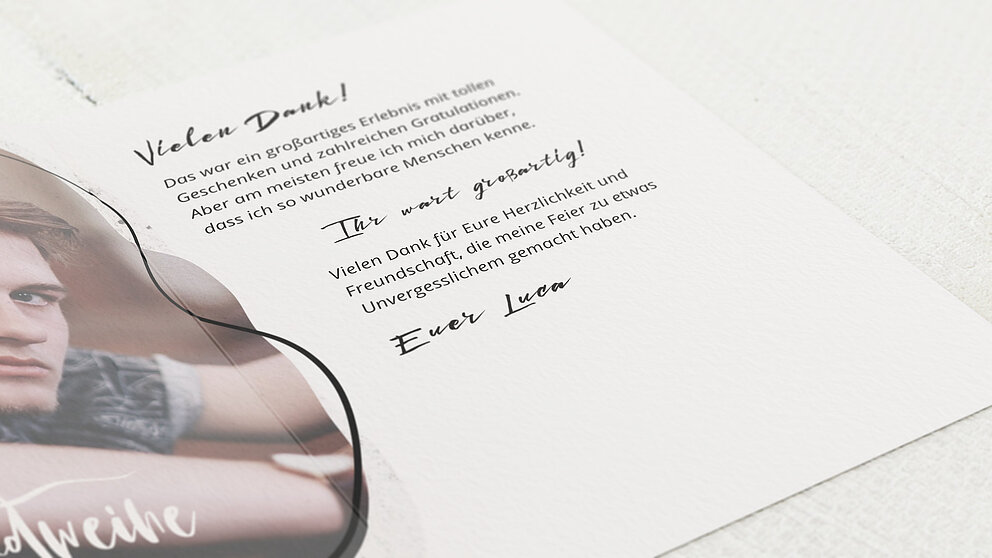 Vielen Dank!
Das war ein großartiges Erlebnis mit tollen
Geschenken und zahlreichen Gratulationen.
Aber am meisten freue ich mich darüber,
dass ich so wunderbare Menschen kenne.
Ihr wart großartig!
Vielen Dank für Eure Herzlichkeit und
Freundschaft, die meine Feier zu etwas
Unvergesslichem gemacht haben.
Euer Luca
dweihe